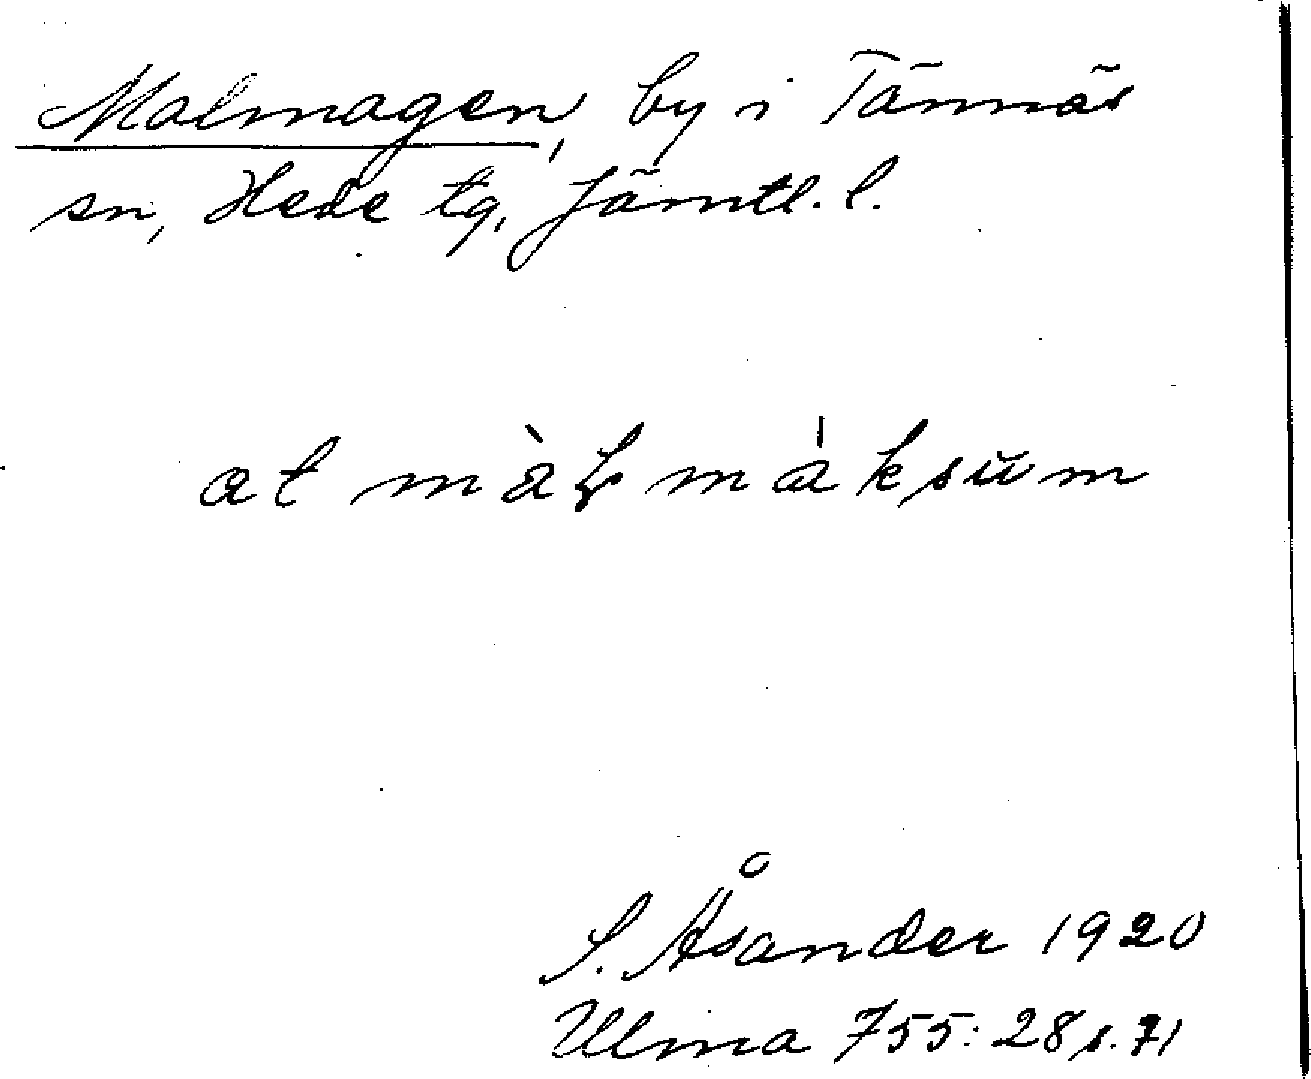 Malmagen, by i Tännäs
sn, Hede tg, Jämtl. l.
at màꞎ máksum
S. Åsander 1920
Ulma 755:28 s. 71